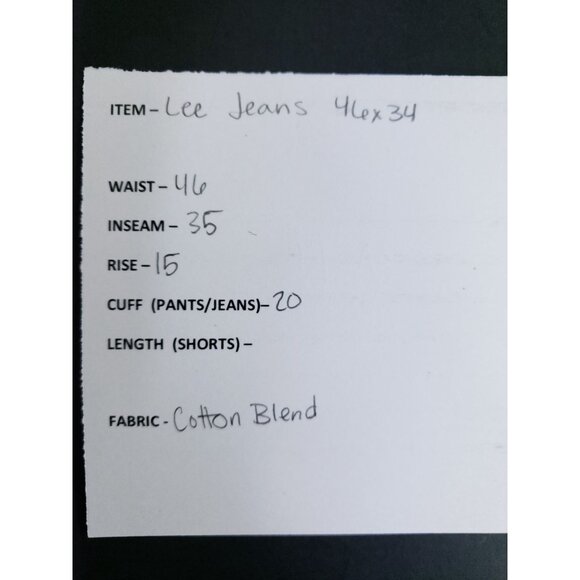 ITEM – Lee Jeans 46x34
WAIST – 46
INSEAM – 35
RISE – 15
CUFF (PANTS/JEANS)– 20
LENGTH (SHORTS) –
FABRIC - Cotton Blend